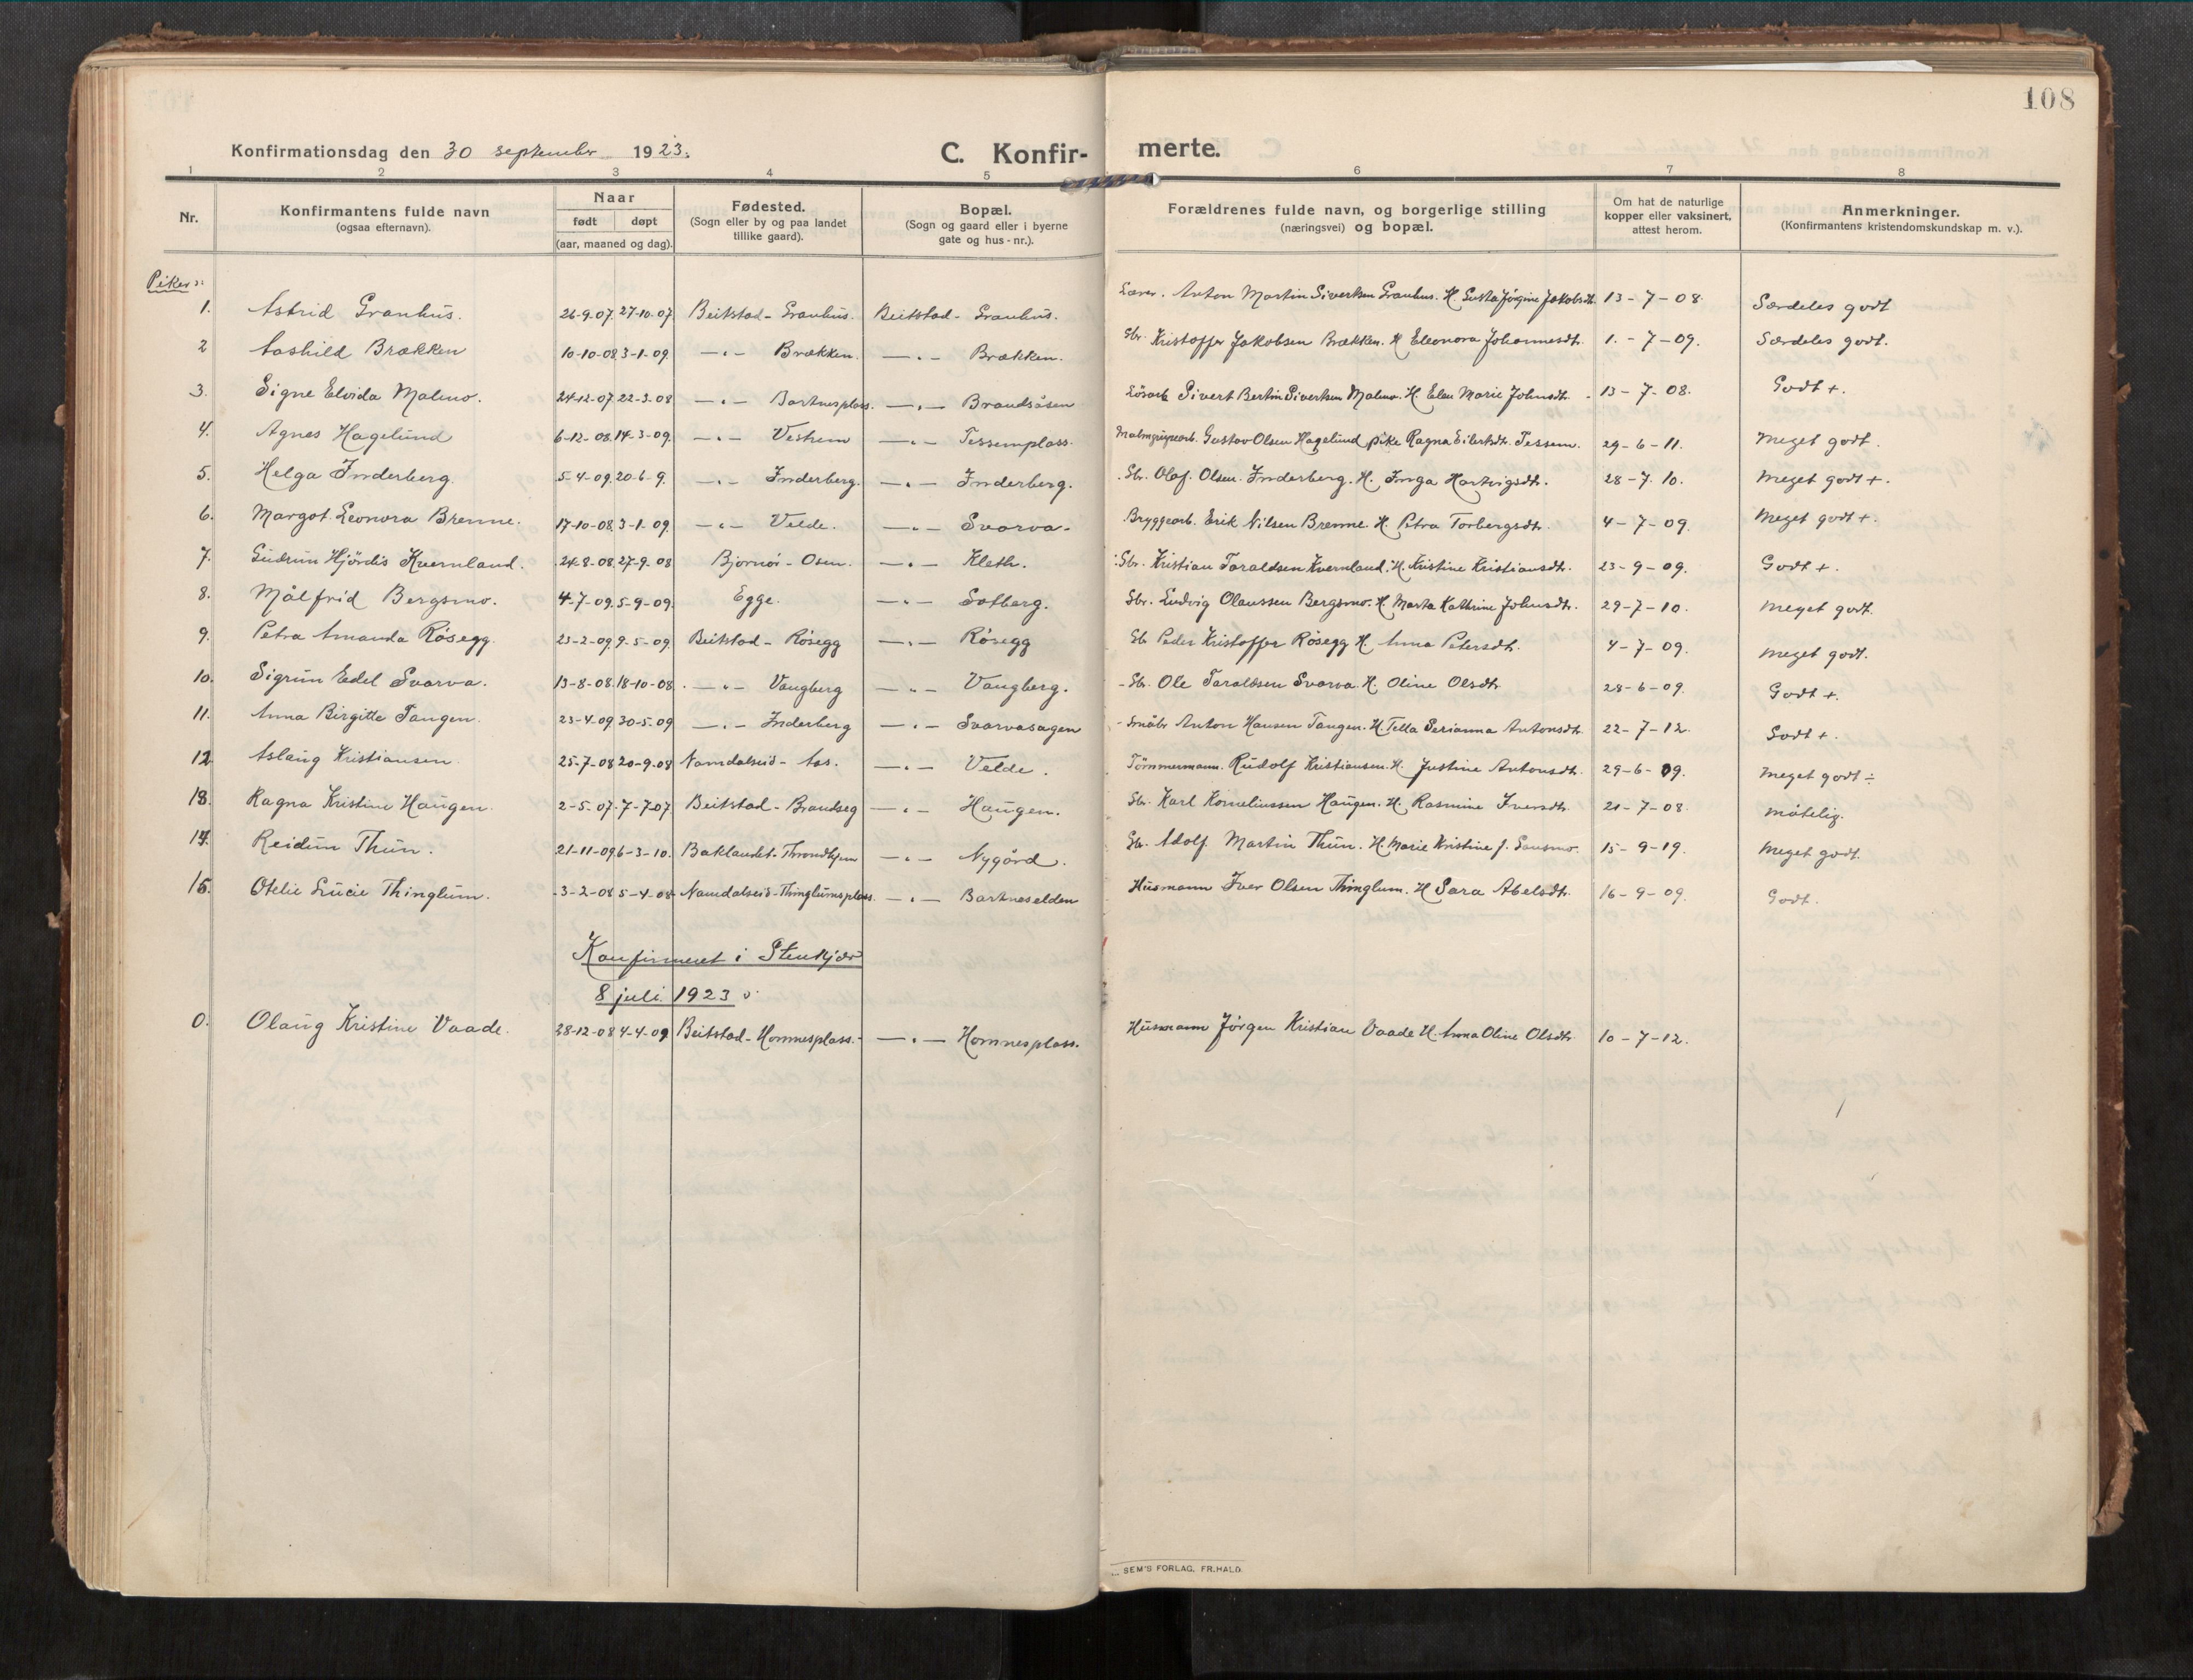 108
Konfirmationsdag den 30 september 1923.
C. Konfir- merte.
1 2 3 4 5 6 7 8
Nr. Konfirmantens fulde navn (ogsaa efternavn). Naar født døpt (aar, maaned og dag). Fødested. (Sogn eller by og paa landet tillike gaard). Bopæl. (Sogn og gaard eller i byerne gate og hus-nr.). Forældrenes fulde navn, og borgerlige stilling (næringsvei) og bopæl. Om hat de naturlige kopper eller vaksinert, attest herom. Anmerkninger. (Konfirmantens kristendomskundskap m. v.).
Piker:
1. Astrid Granhus. 26-9-07 27-10-07 Beitstad - Granhus. Beitstad - Granhus. Lærer. Anton Martin Sivertsen Granhus. H. Gusta Jørgine Jakobsdt. 13-7-08. Særdeles godt
2 Aashild Brækken 10-10-08 3-1-09. —"— Brækken. —"— Brækken. Gbr. Kristoffer Jakobsen Brækken. H Eleonora Johannesdt. 1.-7-09. Særdeles godt.
3. Signe Elvida Malmo. 24-12-07 22-3-08 —"— Bartnesplass. —"— Brandsåsen Løsarb. Sivert Bertin Sivertsen Malmo. H. Elen Marie Johnsdt. - 13-7-08. Godt +.
4. Agnes Hagelund 6-12-08. 14-3-09. —"— Vestrem —"— Tessemplass. Malmgrubearb. Gustav Olsen Hagelund pike Ragna Eilertsdt. Tessem. 29-6-11. Meget godt.
5. Helga Inderberg. 5-4-09. 20-6-9. —"— Inderberg. —"— Inderberg. Gbr. Olaf. Olsen. Inderberg. H. Inga Hartvigsdt. 28-7.10. Meget godt +.
6. Margot Leonora Brenne. 17-10-08. 3-1-09. —"— Velde. —"— Svarva. Bryggearb. Erik Nilsen Brenne. H. Petra Torbergsdt. 4-7-09. Meget godt +.
7. Gudrun Hjördis Kvernland. 24-8-08. 27-9-08 Bjørnör - Osen. —"— Kleth. Gbr. Kristian Taraldsen Kvernland. H. Kristine Kristiansdt. 23-9-09. Godt +.
8. Målfrid Bergsmo. 4-7-09. 5-9-09. Egge. —"— Solberg. Gbr. Ludvig Olaussen Bergsmo. H. Marta Kathrine Johnsdt. 29-7-10. Meget godt.
9. Petra Amanda Røsegg. 23-2-09. 9-5-09. Beitstad - Røsegg —"— Røsegg Gb. Peder Kristoffer Røsegg H. Anna Petersdt. 4-7-09. Meget godt.
10. Sigrun Edel Svarva. 13-8-08. 18-10-08. —"— Vangberg —"— Vangberg. Gbr. Ole Taraldsen Svarva. H. Oline Olsdt. 28-6-09. Godt +.
11. Anna Birgitte Tangen. 23-4-09 30-5-09 —"— Inderberg —"— Svarvasagen Småbr. Anton Hansen Tangen. H. Tella Serianna Antonsdt. 22-7-12. Godt +.
12. Aslaug Kristiansen 25-7-08 20-9-08 Namdalseid - Aas. —"— Velde. Tømmermann. Rudolf Kristiansen. H. Justine Antonsdt. 29-6-09. Meget godt ÷
13. Ragna Kristine Haugen. 2-5-07. 7-7-07 Beitstad - Brandseg —"— Haugen. Gbr. Karl Korneliussen Haugen. H. Rasmine Iversdt. 21-7-08. måtelig.
14. Reidun Thun. 21-11-09. 6-3-10. Baklandet - Throndhjem —"— Nygård. Gbr. Adolf Martin Thun. H. Marie Kristine J. Sausmo. 15-9-19. Meget godt.
15. Otelie Lucie Thinglum. 3-2-08 5-4-08 Namdalseid - Thinglumsplass. —"— Bartneselden Husmann Iver Olsen Thinglum. H Sara Abelsdt. 16-9-09. Godt.
Konfirmeret i Stenkjær
8 juli 1923:
0. Olaug Kristine Vaade. 28-12-08 4-4-09 Beitstad - Homnesplass. —"— Homnesplass. Husmann Jørgen Kristian Vaade H. Anna Oline Olsdt. 10-7-12.
SEM'S FORLAG, FR.HALD.